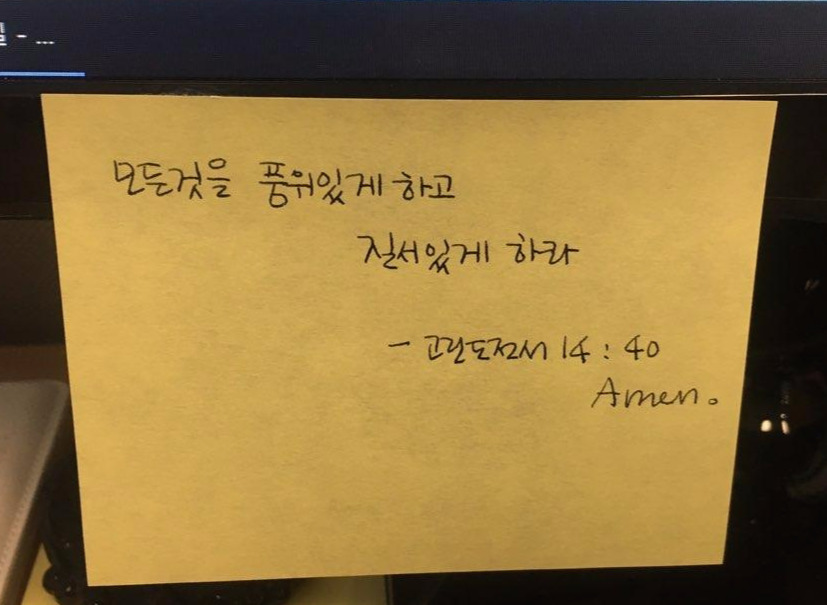 모든것을 풍위있게 하고
질서있게 하라
- 고린도전서 14 : 40
Amen.